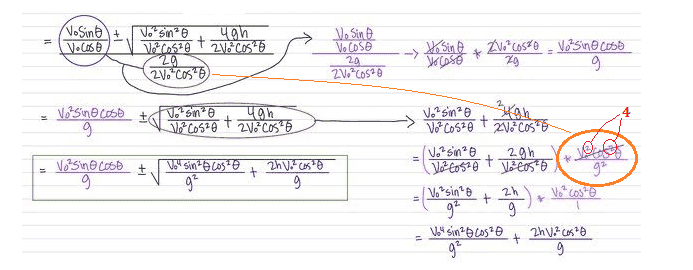 = V₀sinθ/V₀cosθ ± √(V₀²sin²θ/V₀²cos²θ + 4gh/2V₀²cos²θ) / (2g/2V₀²cos²θ) → (V₀sinθ/V₀cosθ)/(2g/2V₀²cos²θ) → V₀sinθ/V₀cosθ * 2V₀²cos²θ/2g = V₀²sinθcosθ/g
= V₀²sinθcosθ/g ± √(V₀²sin²θ/V₀²cos²θ + 4gh/2V₀²cos²θ) → V₀²sin²θ/V₀²cos²θ + ²4gh/2V₀²cos²θ
4
= (V₀²sin²θ/V₀²cos²θ + 2gh/V₀²cos²θ) * V₀²cos²θ/g²
= V₀²sinθcosθ/g ± √(V₀⁴sin²θcos²θ/g² + 2hV₀²cos²θ/g)
= (V₀²sin²θ/g² + 2h/g) * V₀²cos²θ/1
= V₀⁴sin²θcos²θ/g² + 2hV₀²cos²θ/g